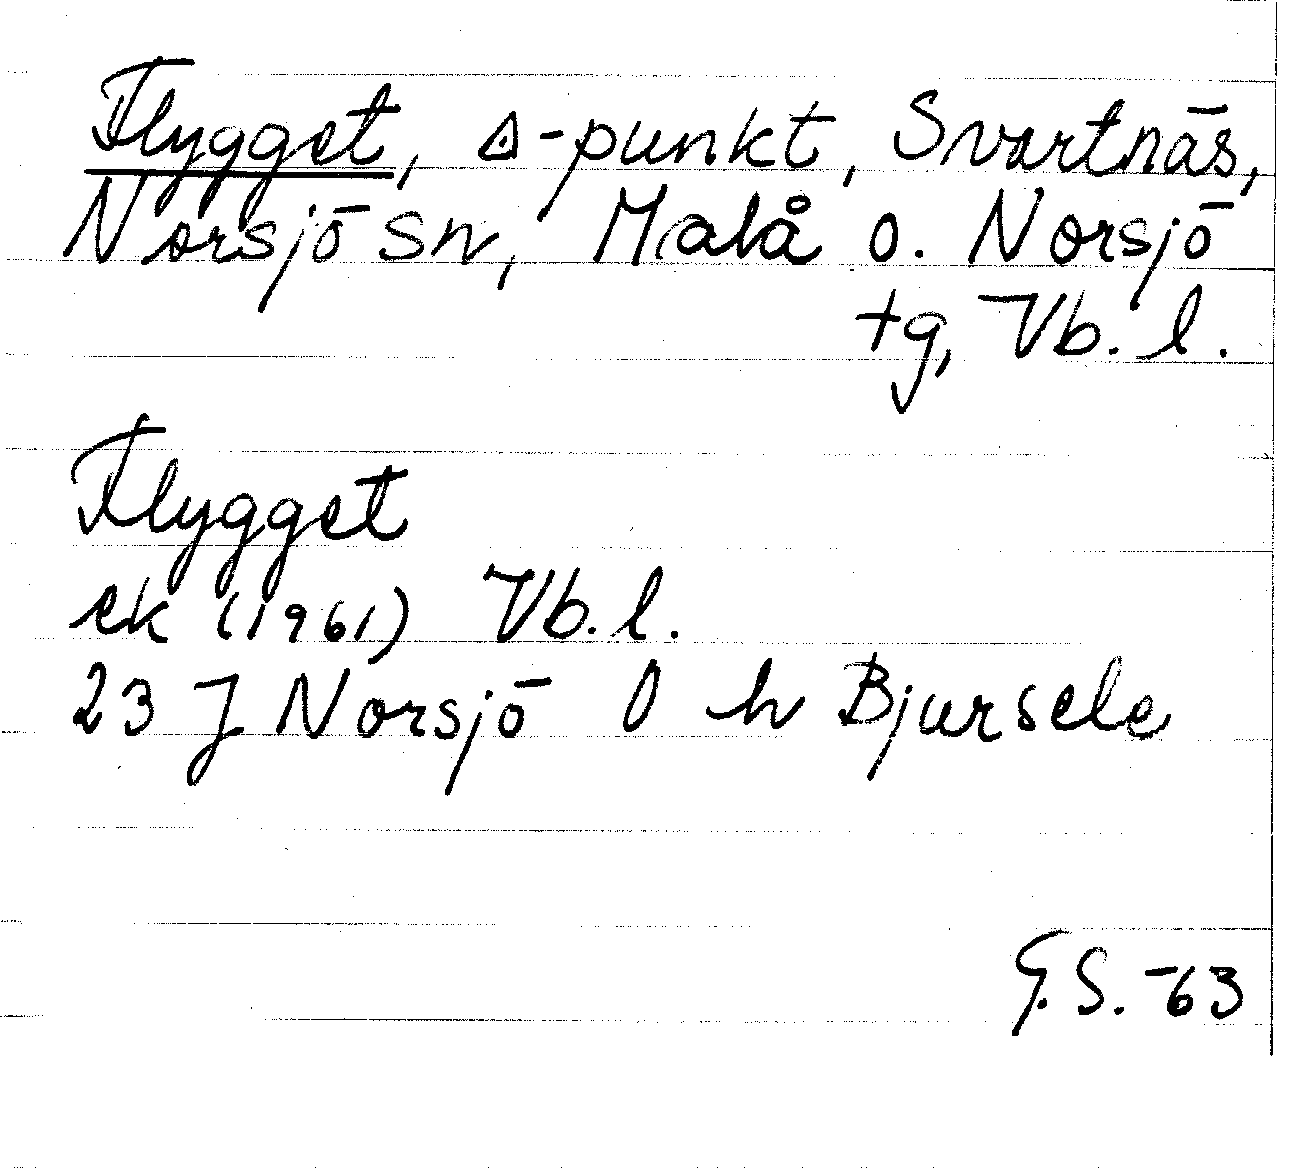 Flygget, △-punkt, Svartnäs,
Norsjö sn, Malå o. Norsjö
tg, Vb. l.
Flygget
ek (1961) Vb. l.
23 J Norsjö O h Bjursele
G.S. -63